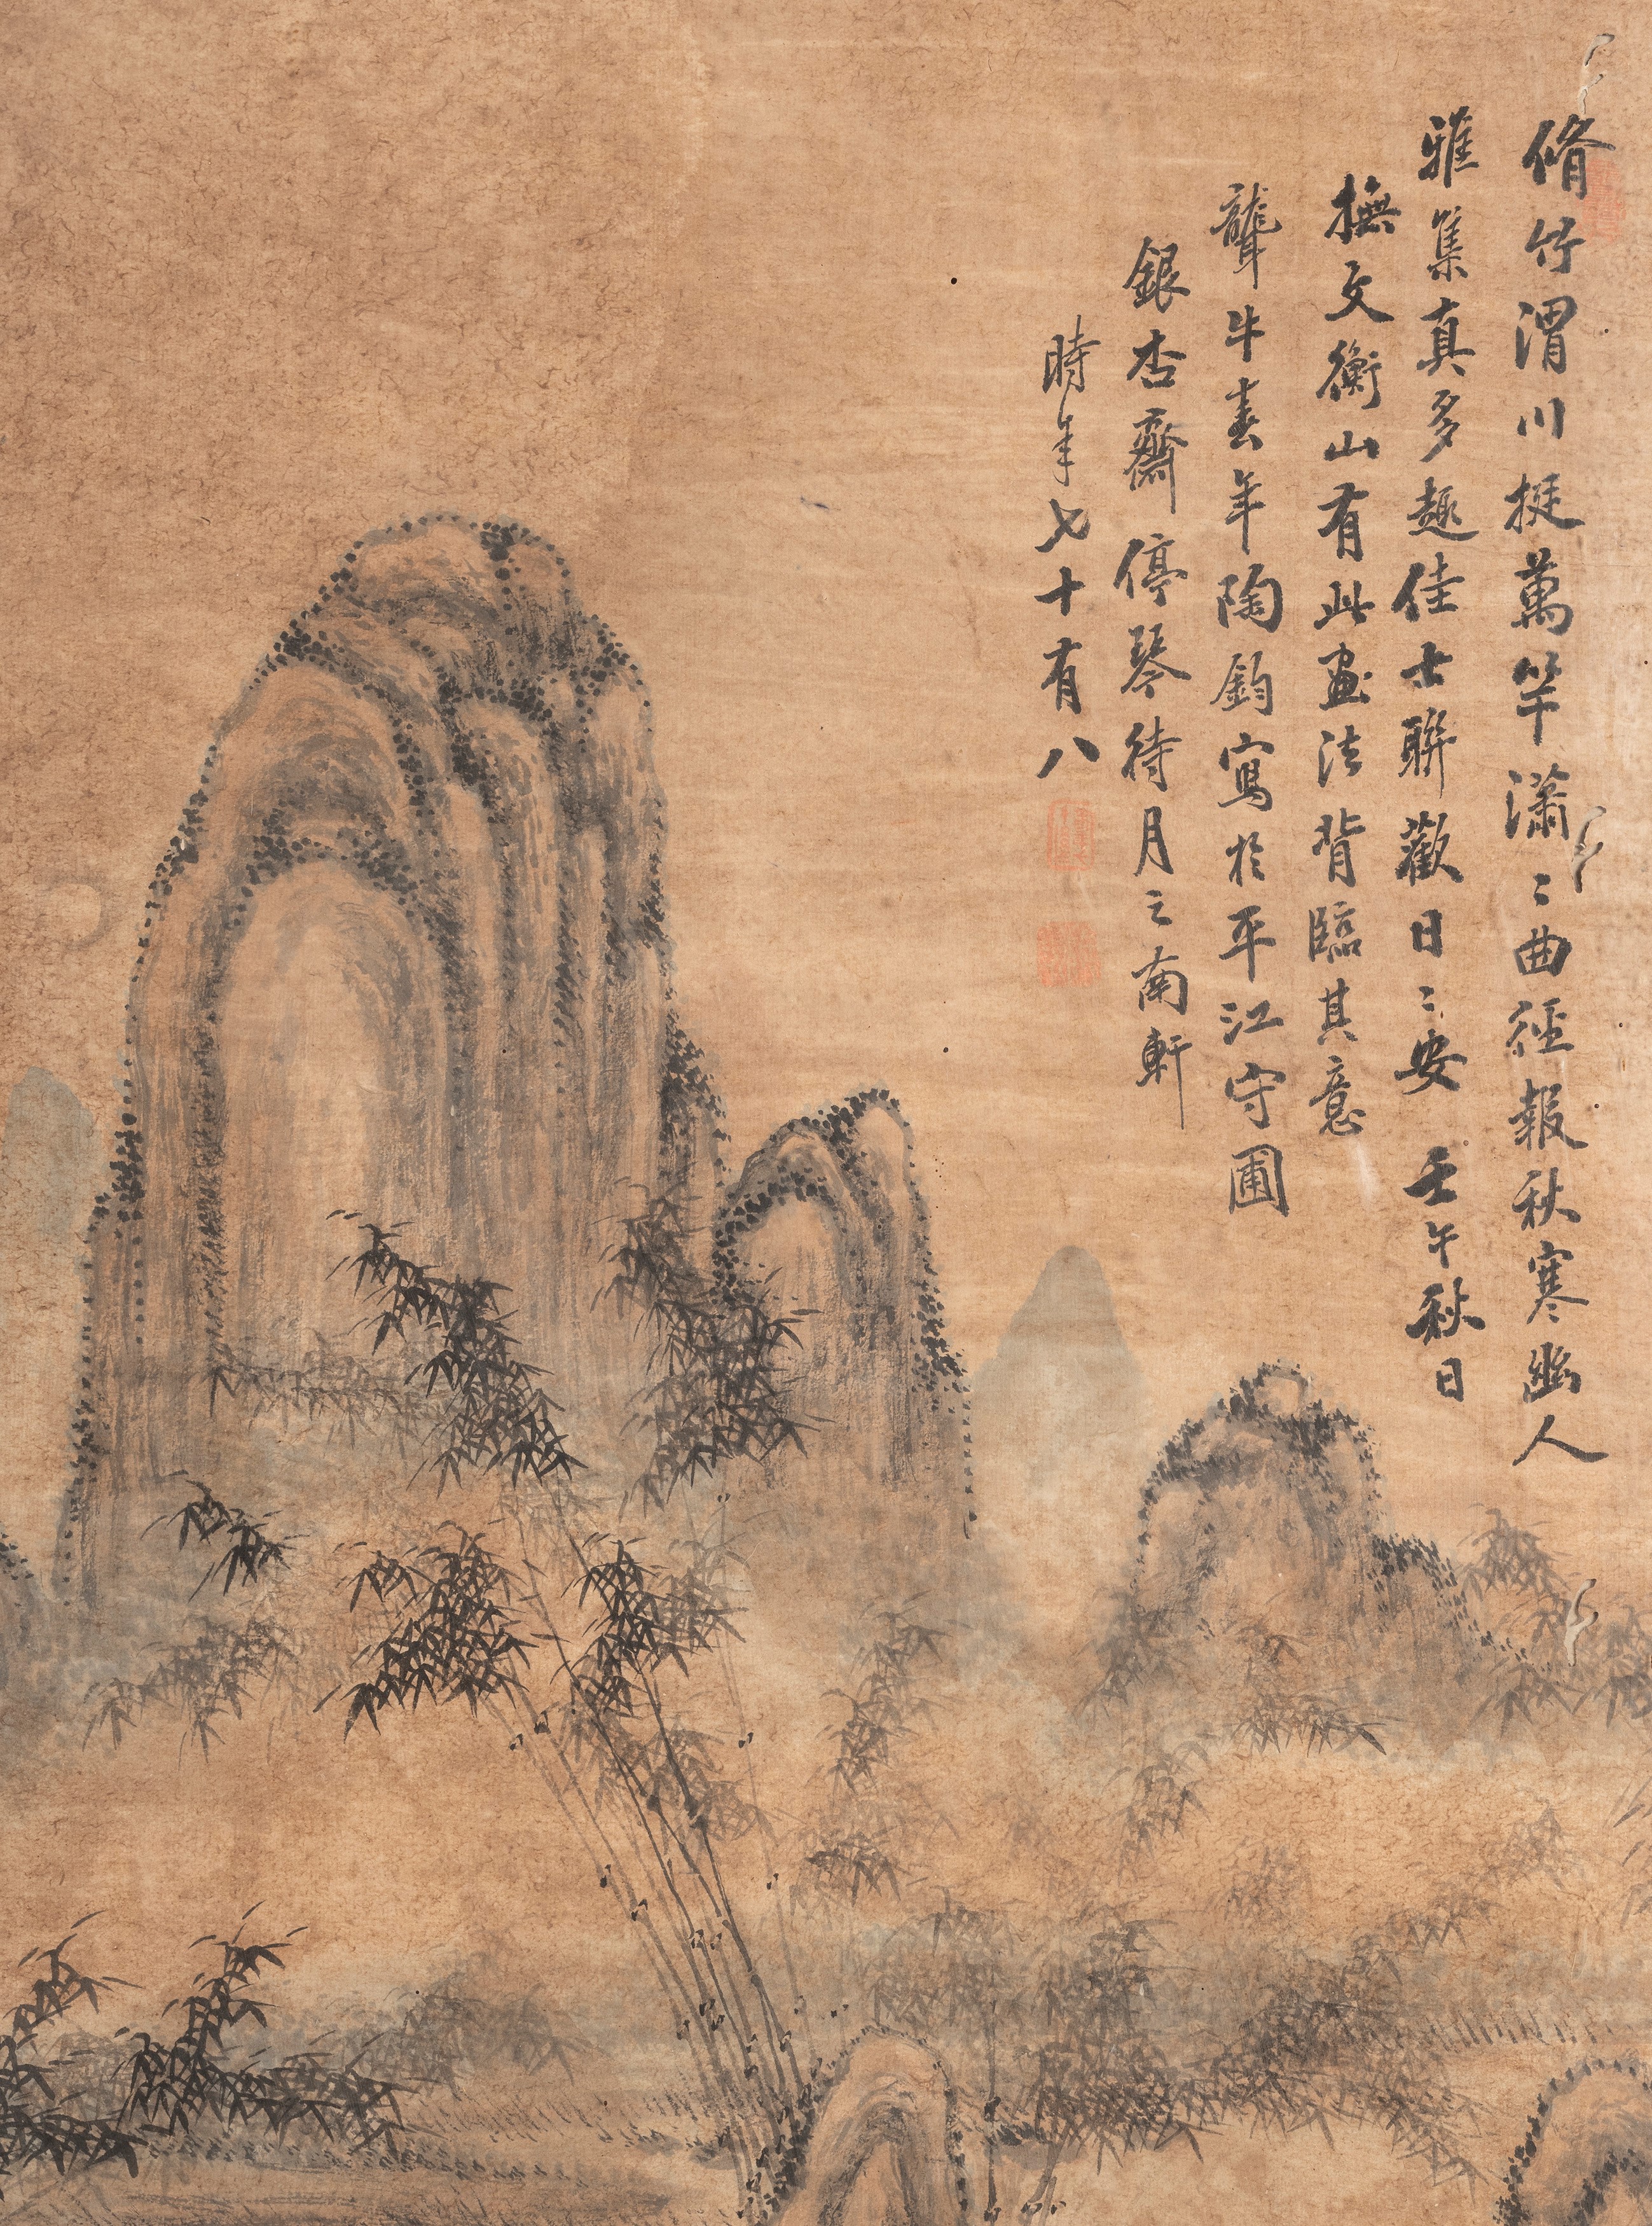 脩竹渭川挺萬竿瀟〻曲徑報秋寒幽人
雅集真多趣佳士聯歡日〻安 壬午秋日
撫文衡山有此畫法背臨其意
聾牛壽年陶鈞寫於平江守圃
銀杏齋停琴待月之南軒
時年七十有八